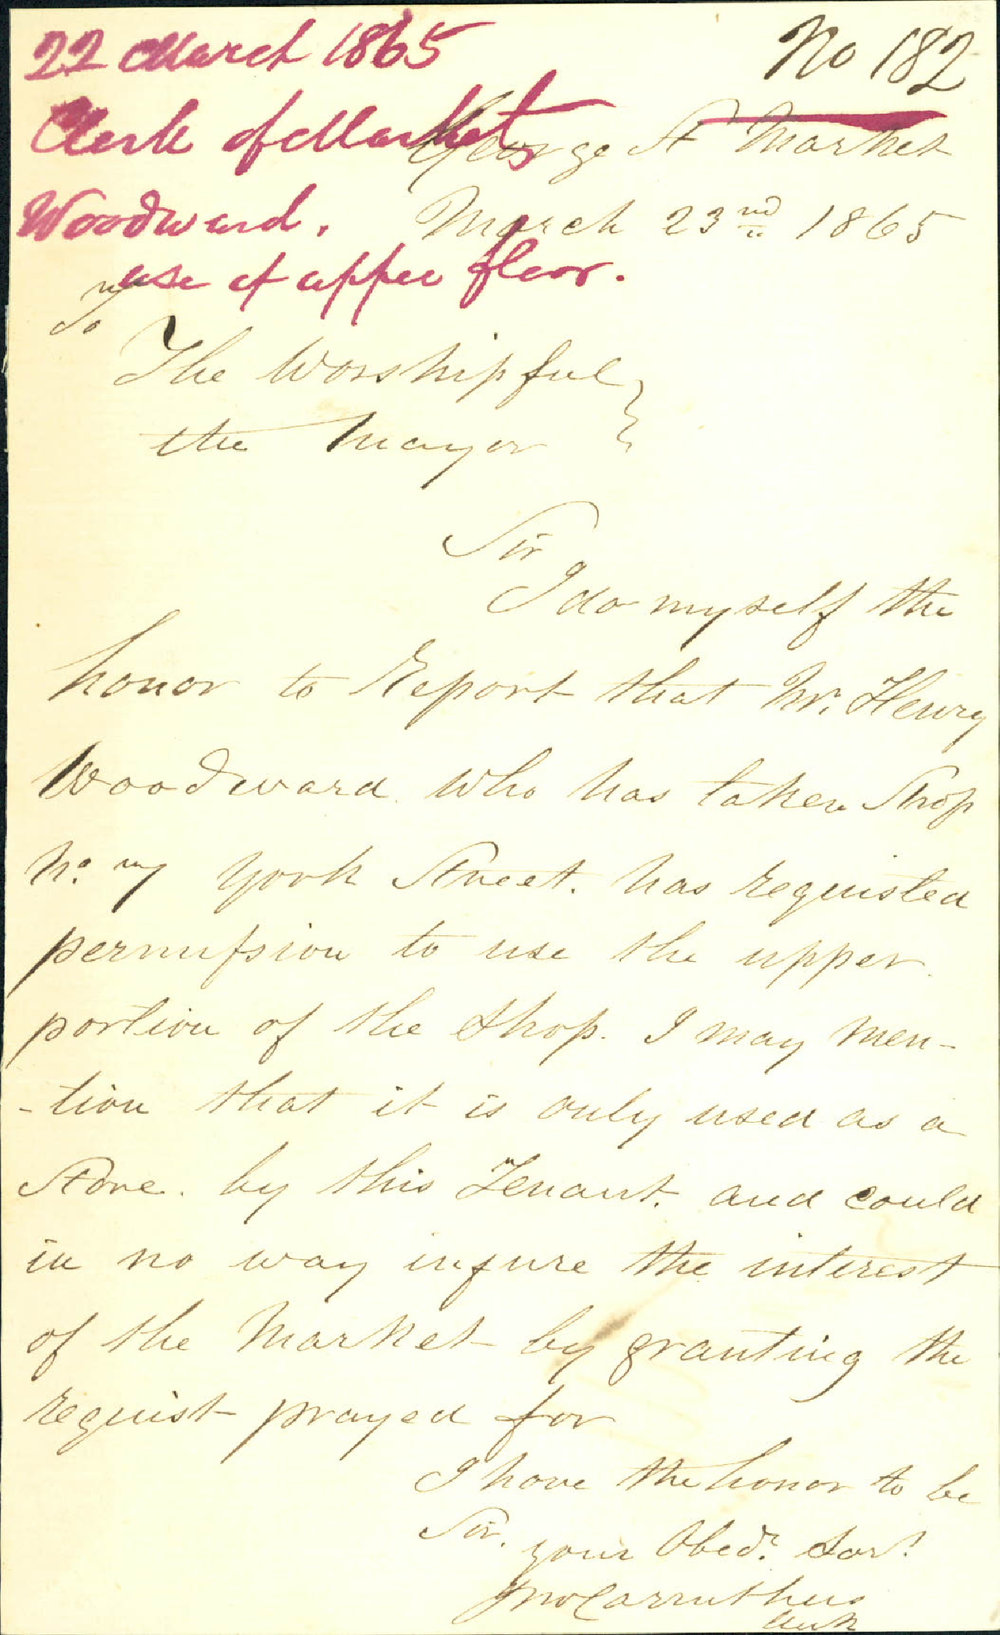 22 March 1865
No 182
Clerk of Markets
Woodward.
use of upper floor.
George St Market
March 23nd 1865
To
The Worshipful
the Mayor
Sir
I do myself the
honor to Report that Mr. Henry
Woodward who has taken Shop
No. 7 York Street. has requisted
permission to use the upper
portion of the shop. I may men-
-tion that it is only used as a
Store. by this Tenant. and could
in no way injure the interest
of the Market by granting the
requist prayed for
I have the honor to be
Sir.
your Obedt. Sart.
Jno Carruthers
Clerk